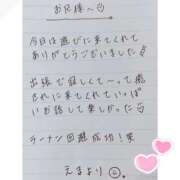 お兄様へ☺
今日は遊びに来てくれて
ありがとうございました
出張で寂しくて〜って癒
されに来てくれていっぱ
いお話して楽しかった☺
チーナン回避成功！笑
えまより☺